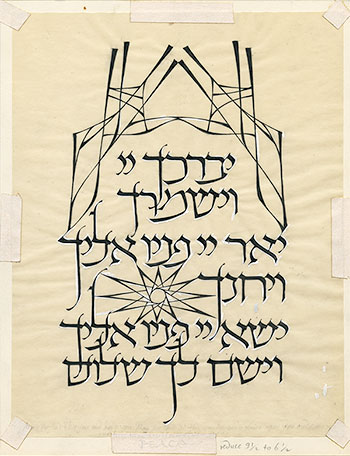 יברכך יי
וישמרך
יאר יי פניו אליך
ויחנך
ישא יי פניו אליך
וישם לך שלום
reduce 9½ to 6½